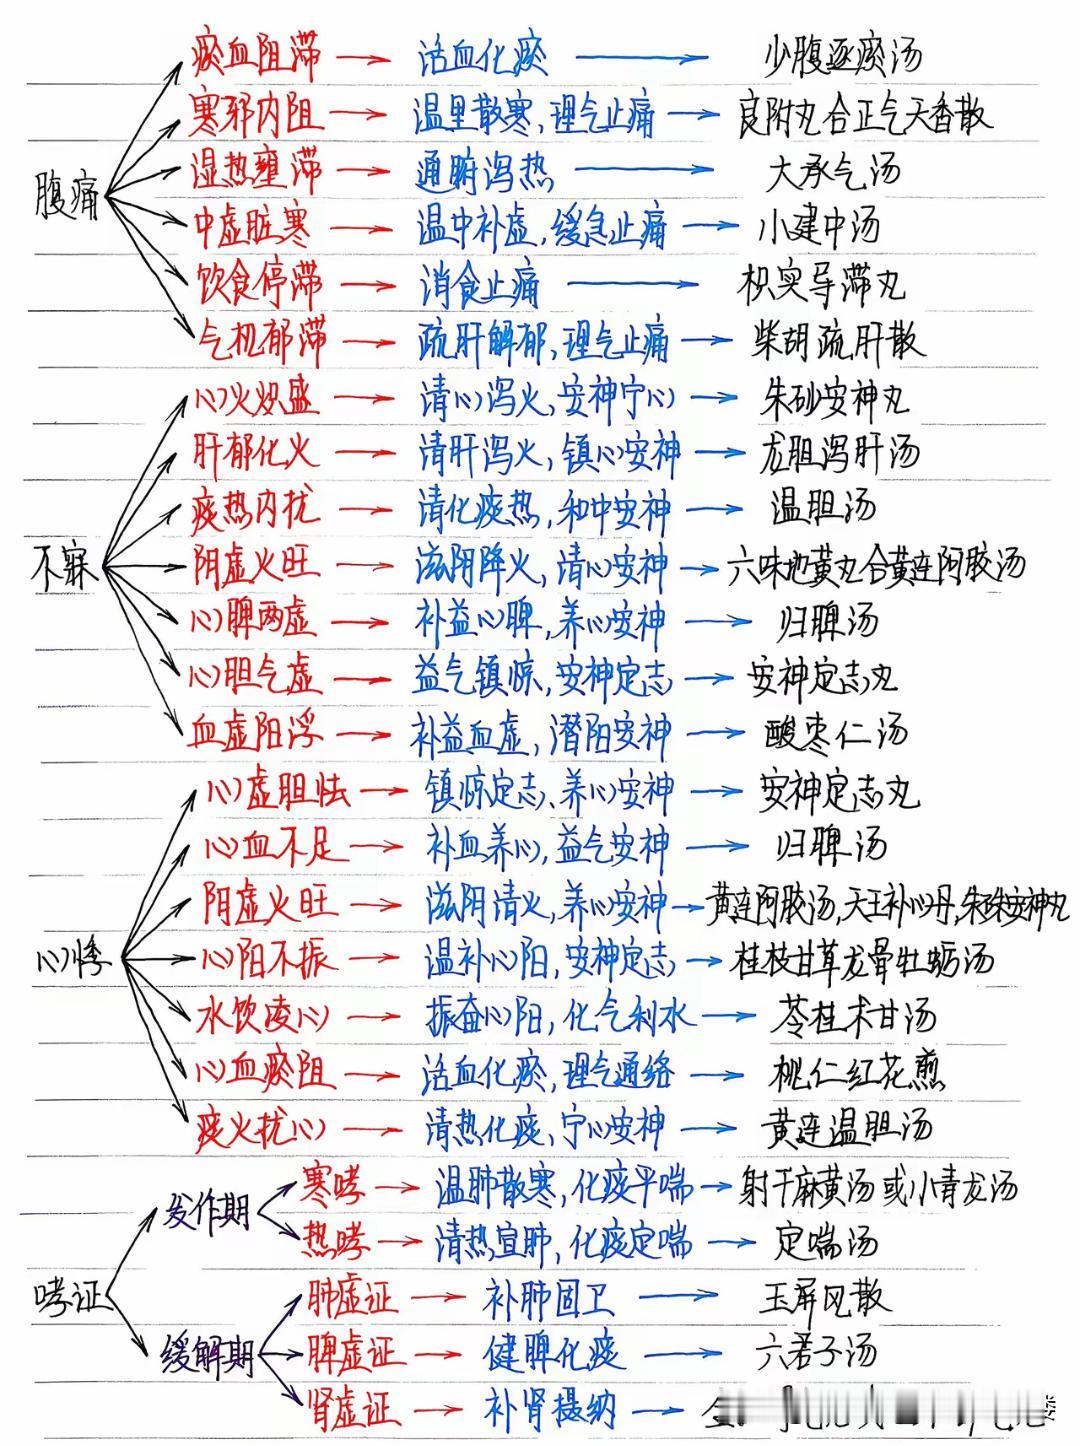 瘀血阻滞 → 活血化瘀 → 少腹逐瘀汤
寒邪内阻 → 温里散寒,理气止痛 → 良附丸合正气天香散
湿热壅滞 → 通腑泻热 → 大承气汤
腹痛
中虚脏寒 → 温中补虚,缓急止痛 → 小建中汤
饮食停滞 → 消食止痛 → 枳实导滞丸
气机郁滞 → 疏肝解郁,理气止痛 → 柴胡疏肝散
心火炽盛 → 清心泻火,安神宁心 → 朱砂安神丸
肝郁化火 → 清肝泻火,镇心安神 → 龙胆泻肝汤
痰热内扰 → 清化痰热,和中安神 → 温胆汤
不寐
阴虚火旺 → 滋阴降火,清心安神 → 六味地黄丸合黄连阿胶汤
心脾两虚 → 补益心脾,养心安神 → 归脾汤
心胆气虚 → 益气镇惊,安神定志 → 安神定志丸
血虚阳浮 → 补益血虚,潜阳安神 → 酸枣仁汤
心虚胆怯 → 镇惊定志、养心安神 → 安神定志丸
心血不足 → 补血养心,益气安神 → 归脾汤
阴虚火旺 → 滋阴清火,养心安神 → 黄连阿胶汤,天王补心丹,朱砂安神丸
心悸
心阳不振 → 温补心阳,安神定志 → 桂枝甘草龙骨牡蛎汤
水饮凌心 → 振奋心阳,化气利水 → 苓桂术甘汤
心血瘀阻 → 活血化瘀,理气通络 → 桃仁红花煎
痰火扰心 → 清热化痰,宁心安神 → 黄连温胆汤
哮证
发作期
寒哮 → 温肺散寒,化痰平喘 → 射干麻黄汤或小青龙汤
热哮 → 清热宣肺,化痰定喘 → 定喘汤
缓解期
肺虚证 → 补肺固卫 → 玉屏风散
脾虚证 → 健脾化痰 → 六君子汤
肾虚证 → 补肾摄纳 →